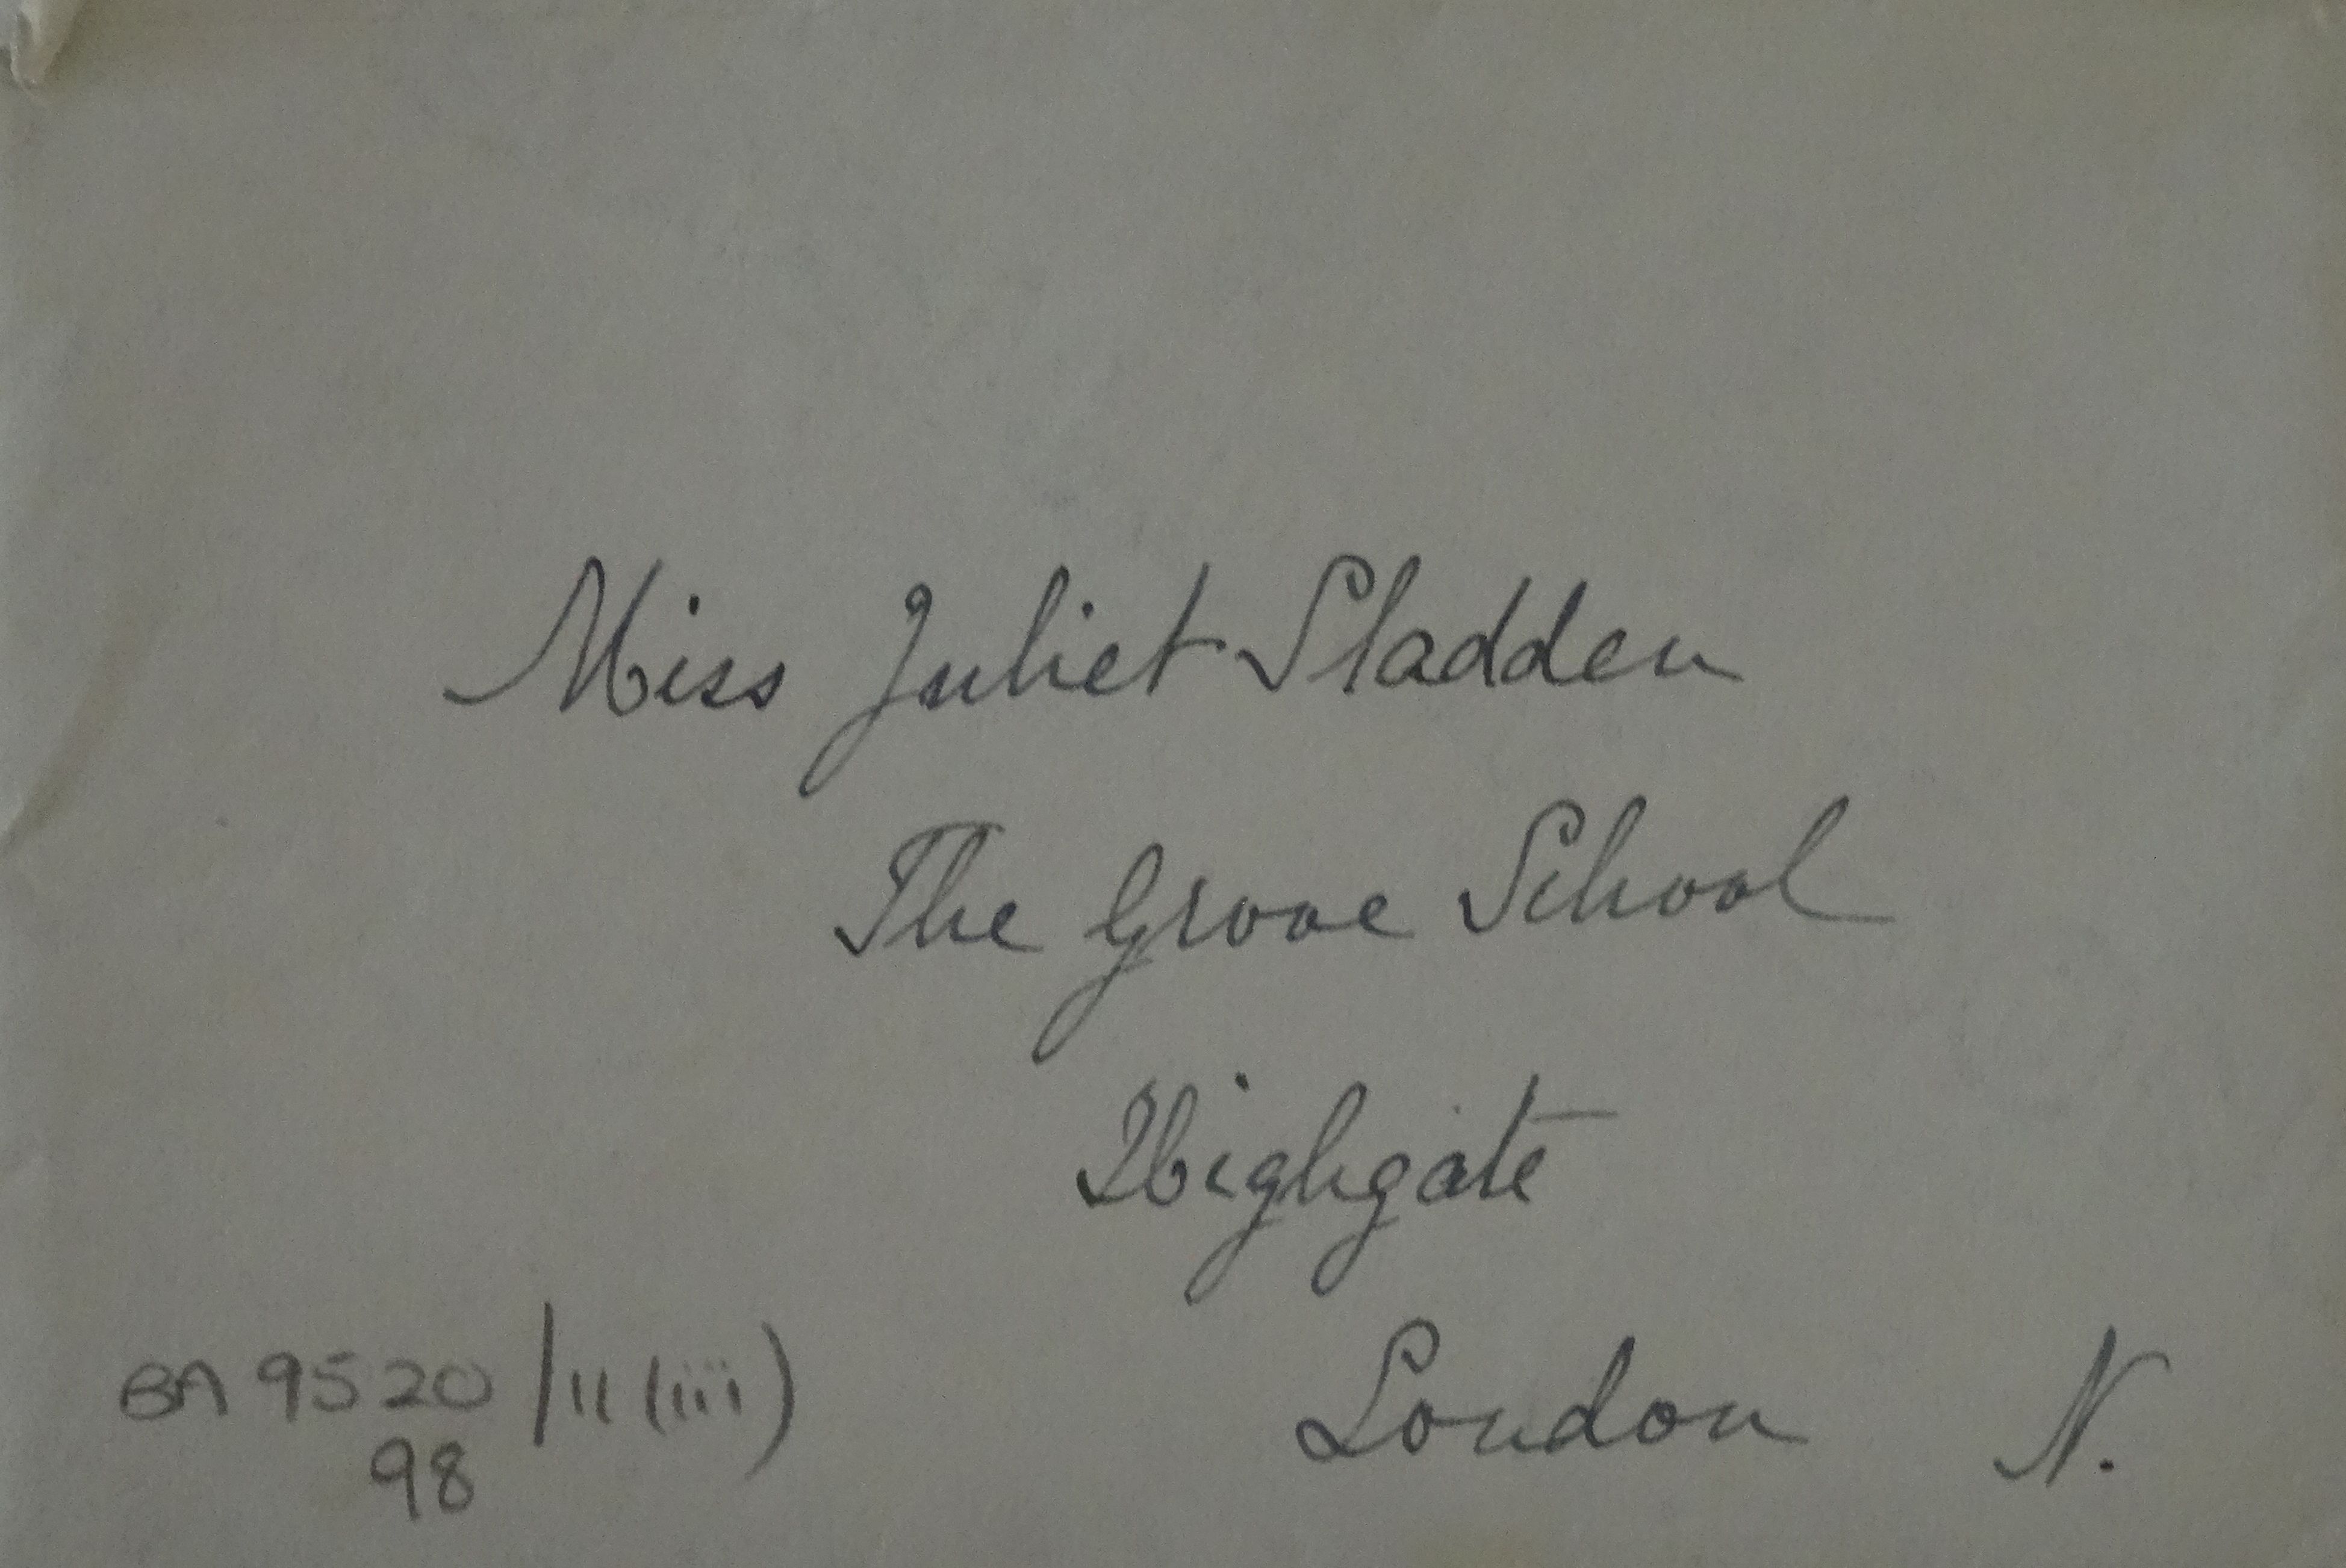 Miss Juliet Sladden
The Grove School
Highgate
London N.
BA 9520/11(iii)
98